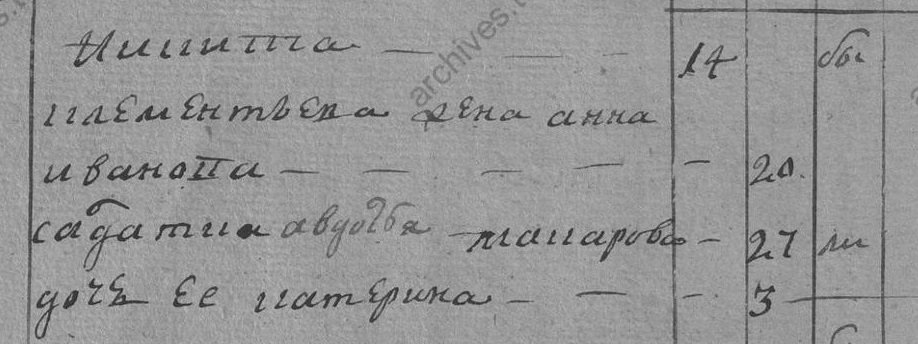 никита — — — 14 бы
клементьева жена анна
иванова — — — — — 20.
салдатка авдотья макарова — 27 ли
дочь ее катерина — — — 3 —
archives.